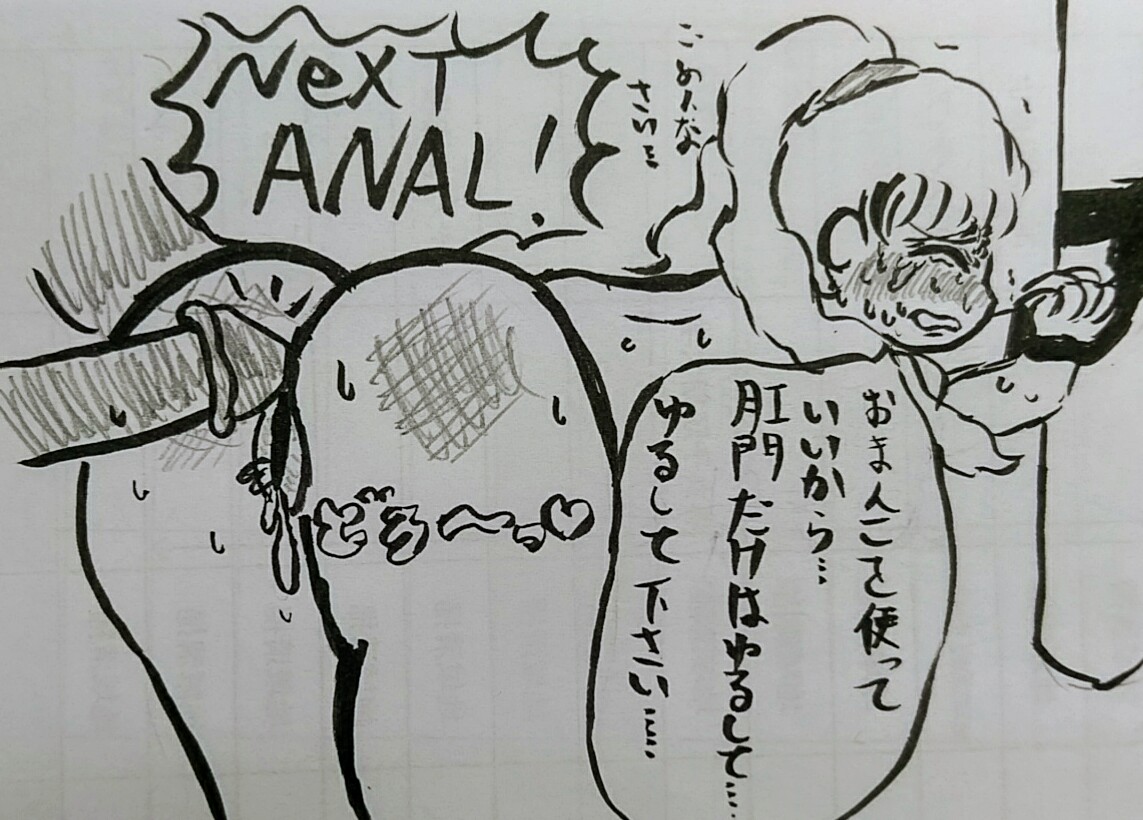 NeXT
ANAL!
ごめんな
さい…
おまんこを使って
いいから…
肛門だけはゆるして…
ゆるして下さい……
どろ〜っ♡